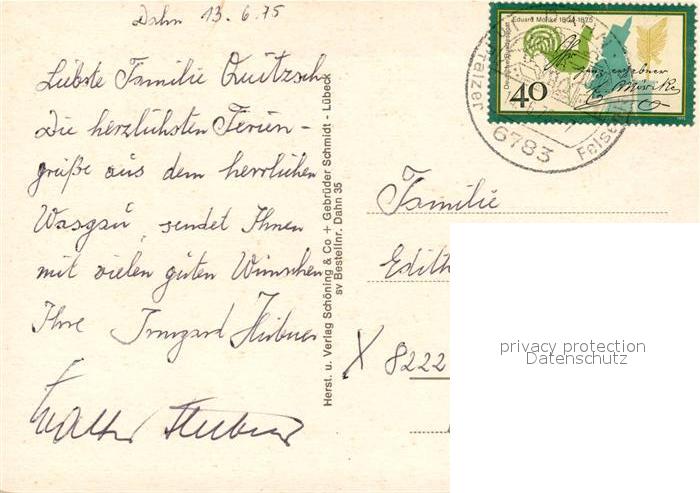 Dahn 13.6.75
Liebste Familie Quitzsch
Die herzlichsten Ferien-
grüße aus dem herrlichen
Wasgau, sendet Ihnen
mit vielen guten Wünschen
Ihre Irmgard Hübner
Walter Hübner
Herst. u. Verlag Schöning & Co + Gebrüder Schmidt - Lübeck
sv Bestellnr. Dahn 35
Eduard Mörike 1804-1875
Deutsche Bundespost
40
Mörike
6783
Felsen
Familie
Edith
X 8222
privacy protection
Datenschutz